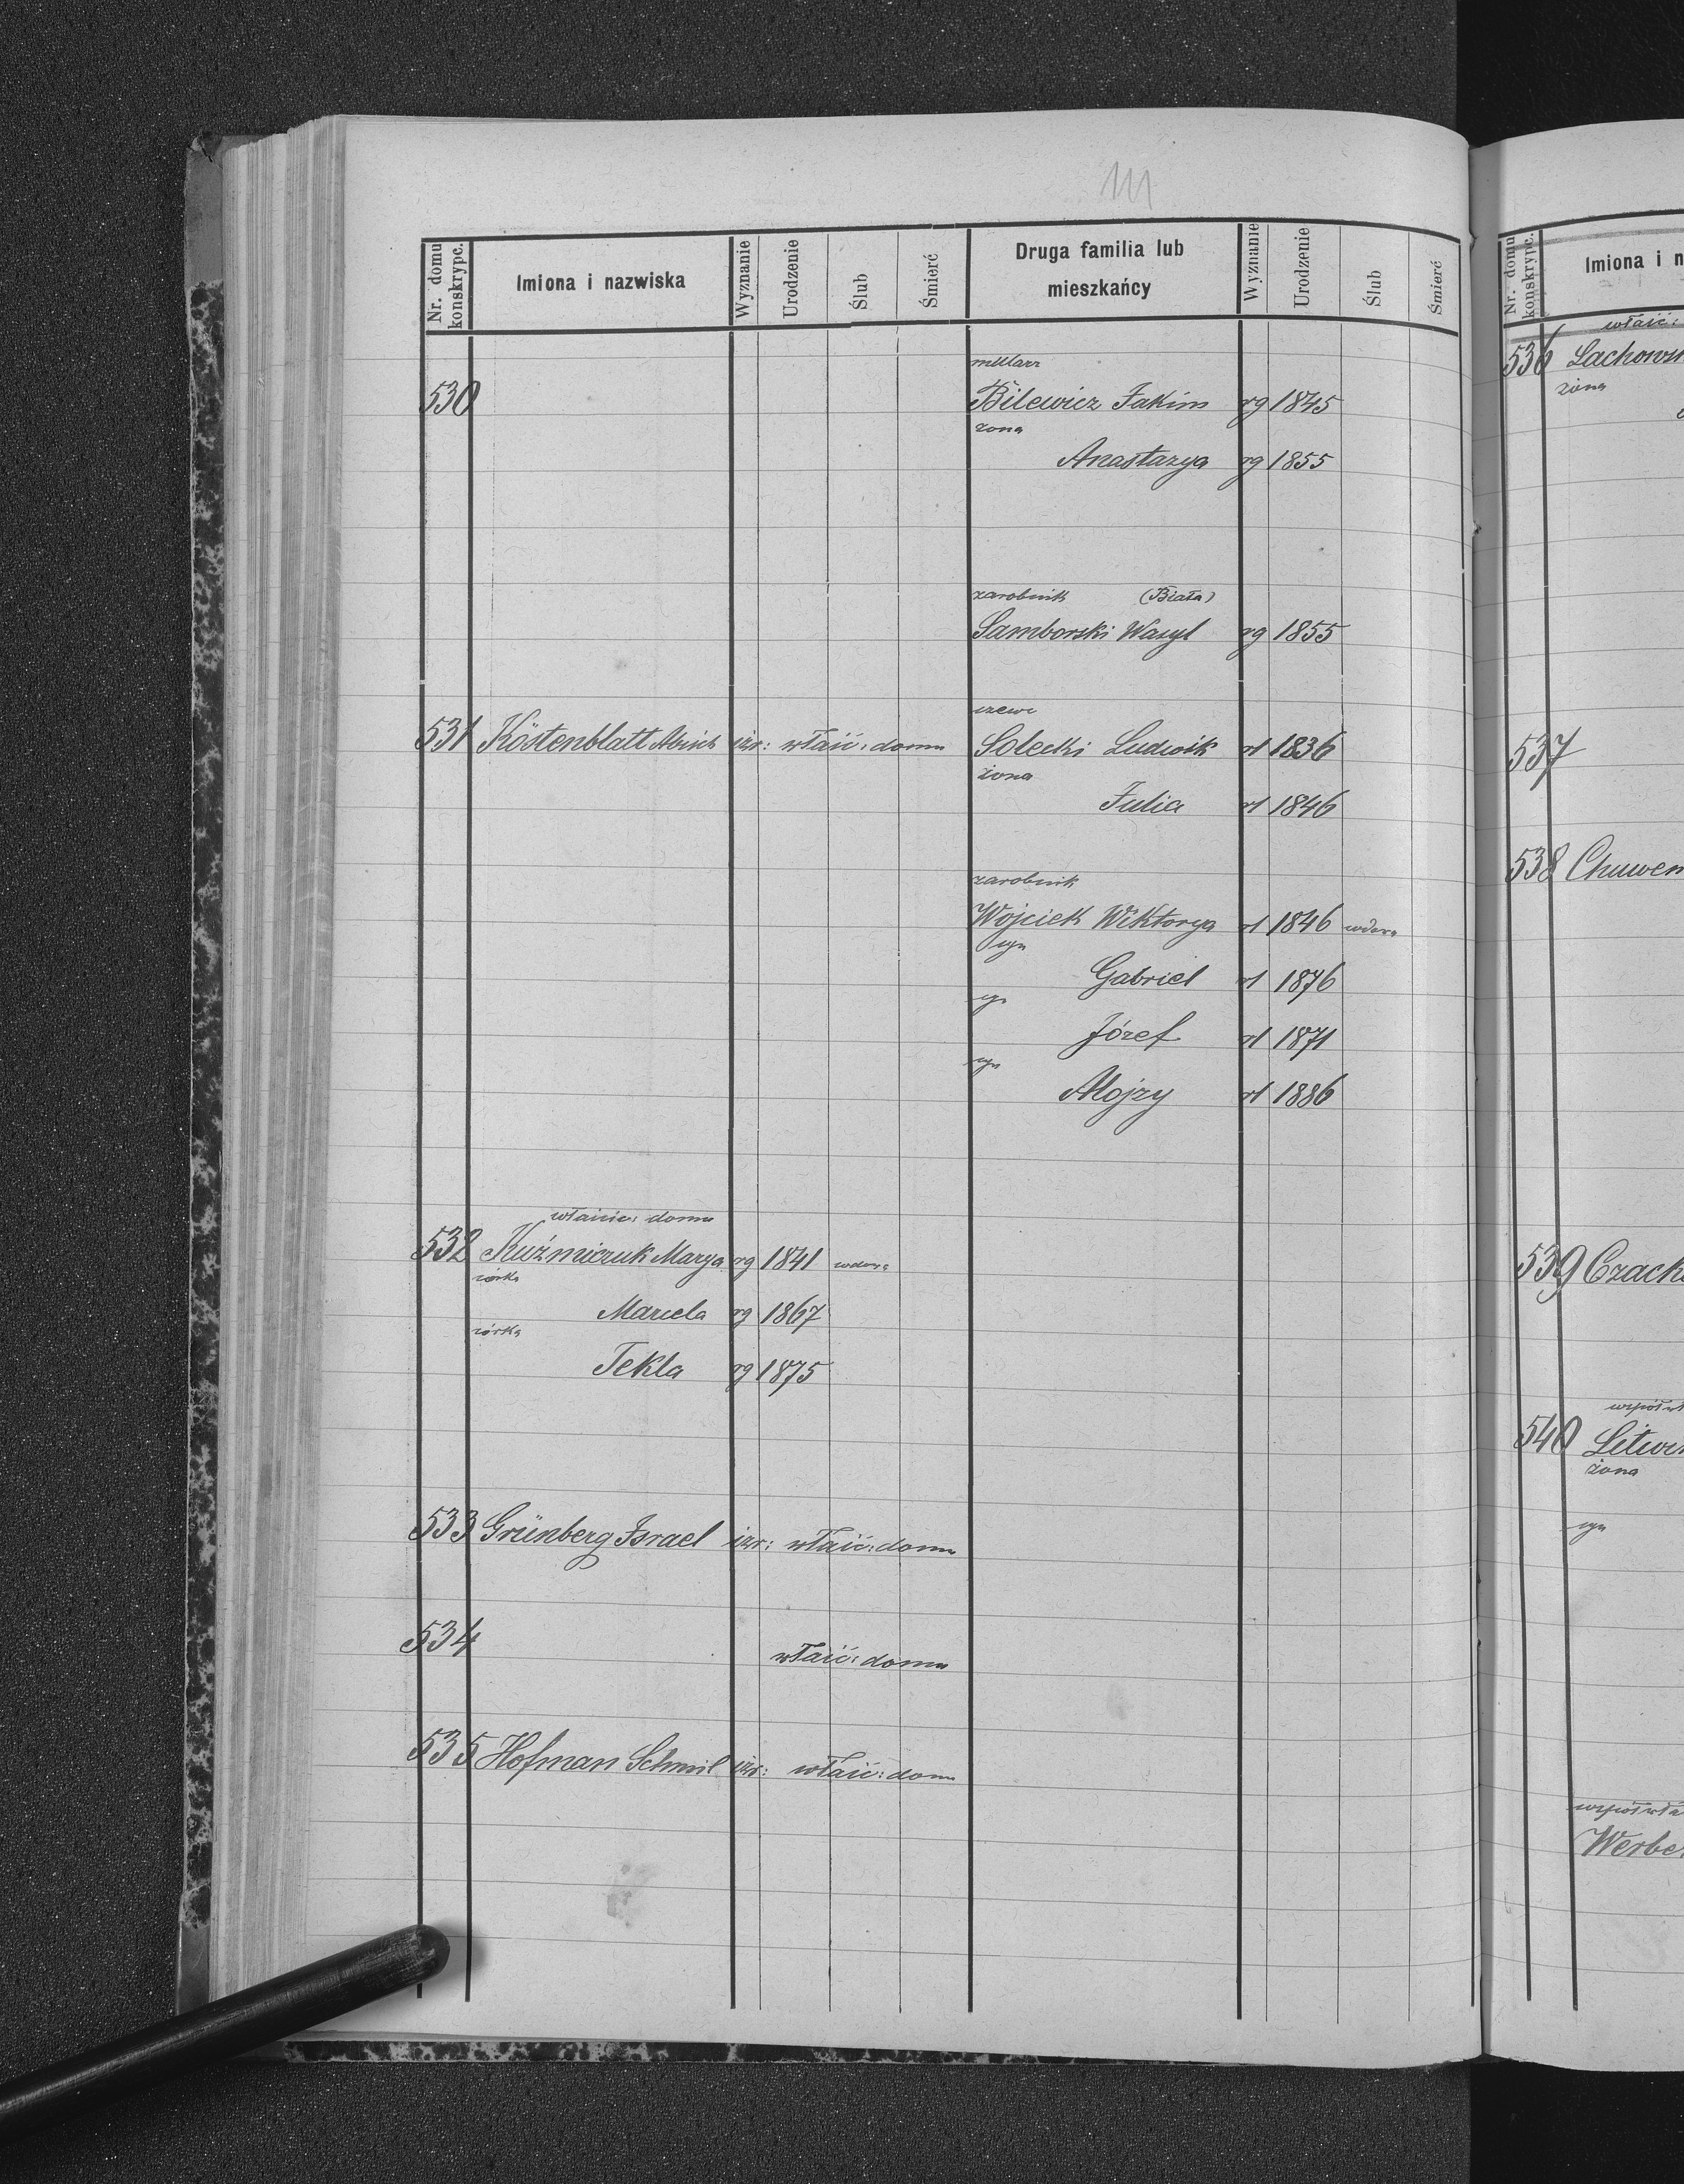 111
Nr. domu konskrypc. Imiona i nazwiska Wyznanie Urodzenie Ślub Śmierć Druga familia lub mieszkańcy Wyznanie Urodzenie Ślub Śmierć
530
Bilewicz Jakim rg 1845
żona
Anastazya rg 1855
zarobnik (Biała)
Samborski Wasyl rg 1855
531 Köstenblatt Abisch izr: właść: domu
szewc
Solecki Ludwik rl 1836
żona
Julia rl 1846
zarobnik
Wojciek Wiktorya rl 1846 wdowa
syn
Gabriel rl 1876
syn
Józef rl 1871
syn
Alojzy rl 1886
właścic: domu
532 Kuźmiczuk Marya rg 1841 wdowa
córka
Marcela rg 1867
córka
Tekla rg 1875
533 Grünberg Israel izr: właść: domu
534 właść: domu
535 Hofman Schmil izr: właść: domu
Nr. domu konskrypc. Imiona i n
właśc:
536 Lachows
żona
537
538 Chuwen
539 Czack
współwł
540 Litw
żona
syn
współwła
Werbe